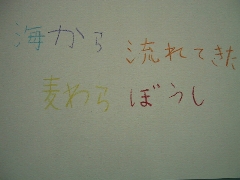 海から 流れてきた
麦わら ぼうし